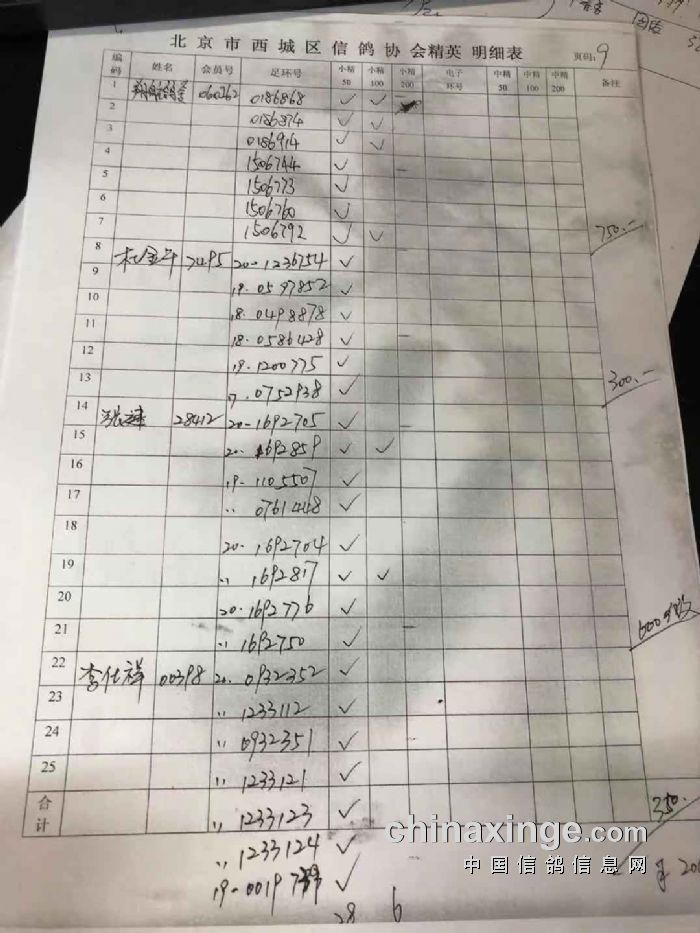 北京市西城区信鸽协会精英 明细表
页码: 9
编码 姓名 会员号 足环号 小精50 小精100 小精200 电子环号 中精50 中精100 中精200 备注
1 060362 0186868 ✓ ✓
2 0186874 ✓ ✓
3 0186914 ✓ ✓
4 1506744 ✓
5 1506773 ✓
6 1506760 ✓
7 1506792 ✓ ✓ 750.-
8 杜金午 7495 20-1236754 ✓
9 19-0597852 ✓
10 18-0498878 ✓
11 18-0586428 ✓
12 19-1200775 ✓
13 17-0752938 ✓ 300.-
14 28412 20-1692705 ✓
15 20-1692859 ✓ ✓
16 19-1105507 ✓
17 〃 0761448 ✓
18 20-1692704 ✓
19 〃 1692817 ✓ ✓
20 20-1692776 ✓
21 〃 1692750 ✓ 600
22 李仕祥 00398 20-0932352 ✓
23 〃 1233112 ✓
24 〃 0932351 ✓
25 〃 1233121 ✓
合计 〃 1233123 ✓ 350.-
〃 1233124 ✓
19-0019 ✓
28 6
chinaxinge.com
中国信鸽信息网